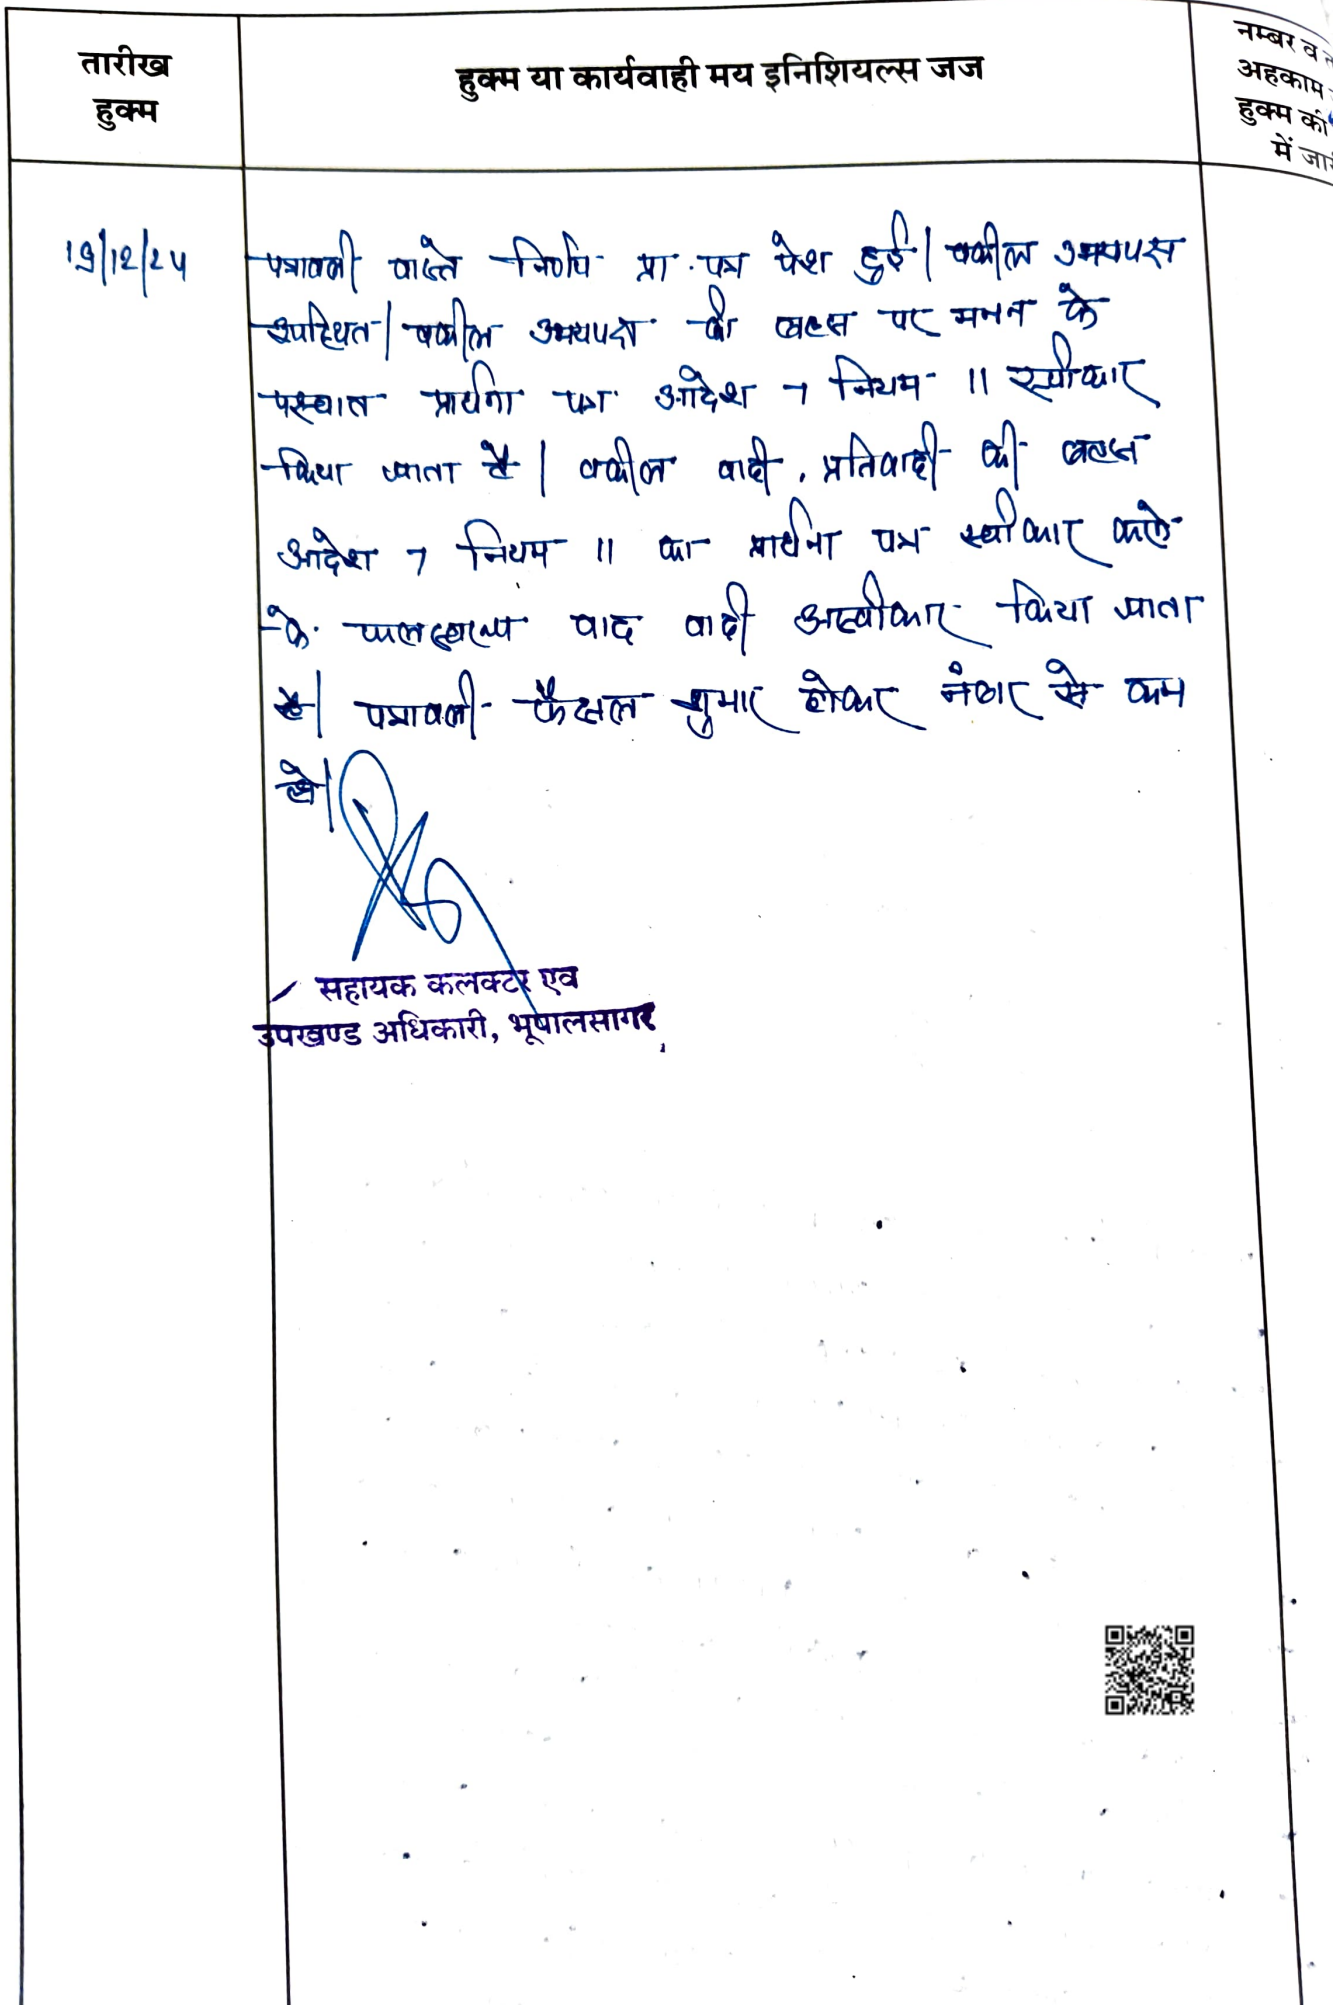 तारीख
हुक्म
हुक्म या कार्यवाही मय इनिशियल्स जज
नम्बर व
अहकाम
हुक्म की
में जारी
19/12/24
पत्रावली वास्ते निर्णय प्रा. पत्र पेश हुई। वकील उभयपक्ष
उपस्थित। वकील उभयपक्ष की बहस पर मनन के
पश्चात प्रार्थना पत्र आदेश 7 नियम 11 स्वीकार
किया जाता है। वकील वादी, प्रतिवादी की बहस
आदेश 7 नियम 11 का प्रार्थना पत्र स्वीकार करने
के फलस्वरूप वाद वादी अस्वीकार किया जाता
है। पत्रावली फैसल शुमार होकर नंबर से कम
हो।
सहायक कलक्टर एव
उपखण्ड अधिकारी, भूपालसागर